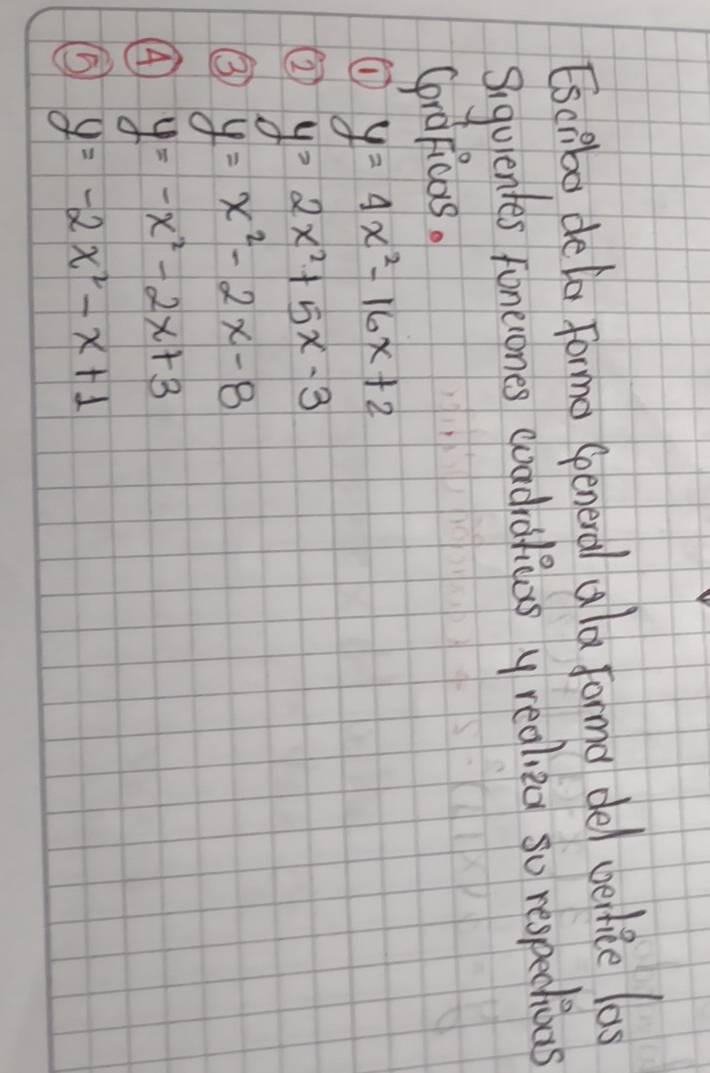 Escribo de la forma General a la forma del vertice las
Siguientes funciones cuadráticas y realiza su respectivas
Gráficas.
① y = 4x² - 16x + 2
② y = 2x² + 5x - 3
③ y = x² - 2x - 8
④ y = -x² - 2x + 3
⑤ y = -2x² - x + 1